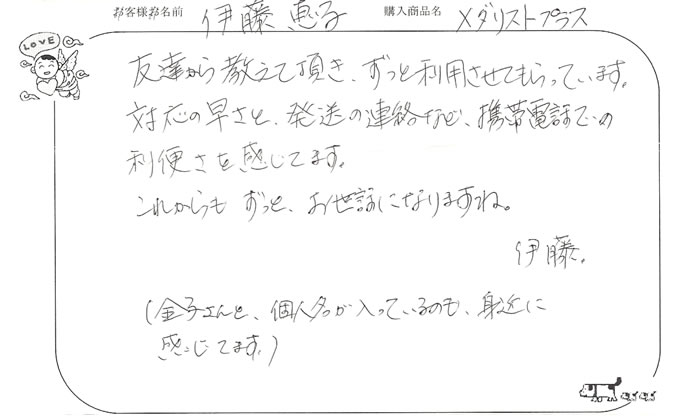 お客様お名前 伊藤 恵子 購入商品名 メダリストプラス
LOVE
友達から教えて頂き、ずっと利用させてもらっています。
対応の早さと、発送の連絡など、携帯電話での
利便さを感じてます。
これからも ずっと、お世話になりますね。
伊藤。
(金子さんと、個人名が入っているのも、身近に
感じてます。)